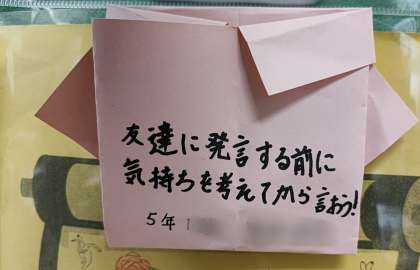 友達に発言する前に
気持ちを考えてから言おう!
5年